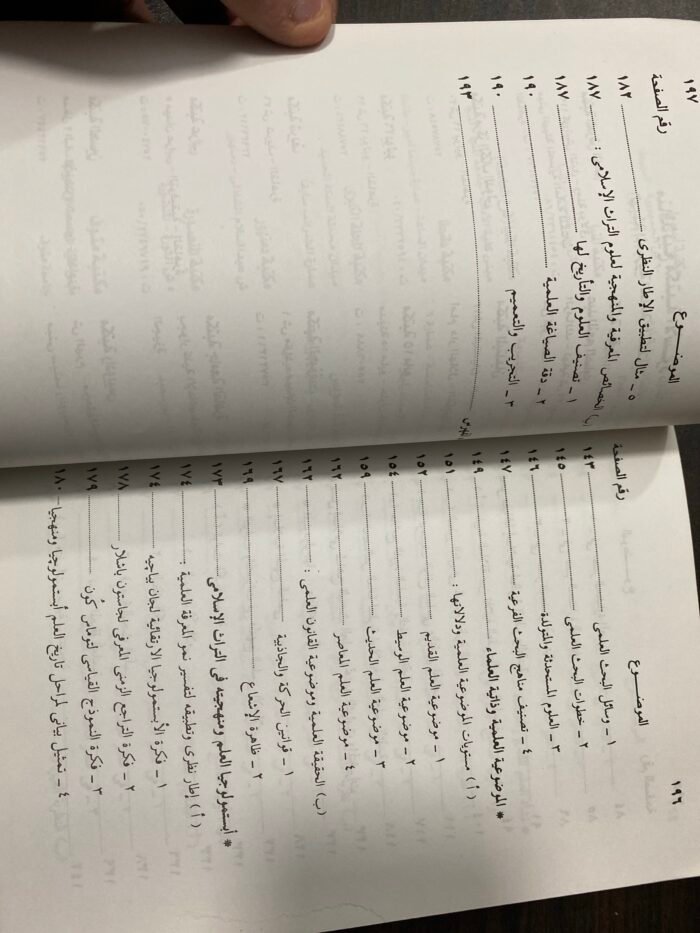 ١٩٦
الموضـــوع
رقم الصفحة
١ ـ وسائل البحث العلمى ........ ١٤٣
٢ ـ خطوات البحث العلمى ........ ١٤٥
٣ ـ العلوم المستحدثة والمتولدة ........ ١٤٦
٤ ـ تصنيف مناهج البحث الفرعية ........ ١٤٧
* الموضوعية العلمية وذاتية العلماء ........ ١٤٩
( أ ) مستويات الموضوعية العلمية ودلالاتها : ........ ١٥١
١ ـ موضوعية العلم القديم ........ ١٥٢
٢ ـ موضوعية العلم الوسيط ........ ١٥٤
٣ ـ موضوعية العلم الحديث ........ ١٥٩
٤ ـ موضوعية العلم المعاصر ........ ١٦٢
(ب) الحقيقة العلمية وموضوعية القانون العلمى : ........ ١٦٣
١ ـ قوانين الحركة والجاذبية ........ ١٦٧
٢ ـ ظاهرة الإشعاع ........ ١٦٩
* أبستمولوجيا العلم ومنهجيته فى التراث الإسلامى ........ ١٧٣
( أ ) إطار نظرى وتطبيقه لتفسير نمو المعرفة العلمية : ........ ١٧٤
١ ـ فكرة الأبستمولوجيا الارتقائية لجان بياجيه ........ ١٧٤
٢ ـ فكرة التراجع الزمنى المعرفى لجاستون باشلار ........ ١٧٨
٣ ـ فكرة النموذج القياسى لتوماس كُون ........ ١٧٩
٤ ـ تمثيل بيانى لمراحل تاريخ العلم أبستمولوجيا ومنهجيا ـ ١٨٠
١٩٧
الموضـــوع
رقم الصفحة
٥ ـ مثال لتطبيق الإطار النظرى ........ ١٨٢
(ب) الخصائص المعرفية والمنهجية لعلوم التراث الإسلامى : ........ ١٨٧
١ ـ تصنيف العلوم والتأريخ لها ........ ١٨٧
٢ ـ دقة الصياغة العلمية ........ ١٩٠
٣ ـ التجريب والتعميم ........ ١٩٠
الفهرس ........ ١٩٣